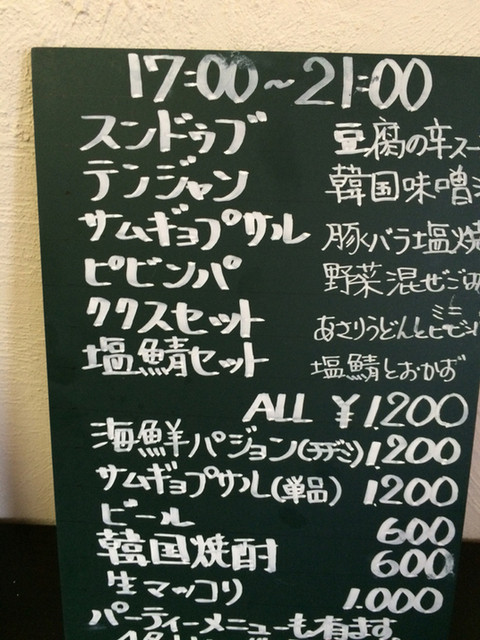 17:00～21:00
スンドゥブ 豆腐の辛スー
テンジャン 韓国味噌
サムギョプサル 豚バラ塩焼
ピビンパ 野菜混ぜご
ククスセット あさりうどんとミニピビンパ
塩鯖セット 塩鯖とおかず
ALL ¥1,200
海鮮パジョン(チヂミ) 1,200
サムギョプサル(単品) 1,200
ビール 600
韓国焼酎 600
生マッコリ 1,000
パーティーメニューも有ます